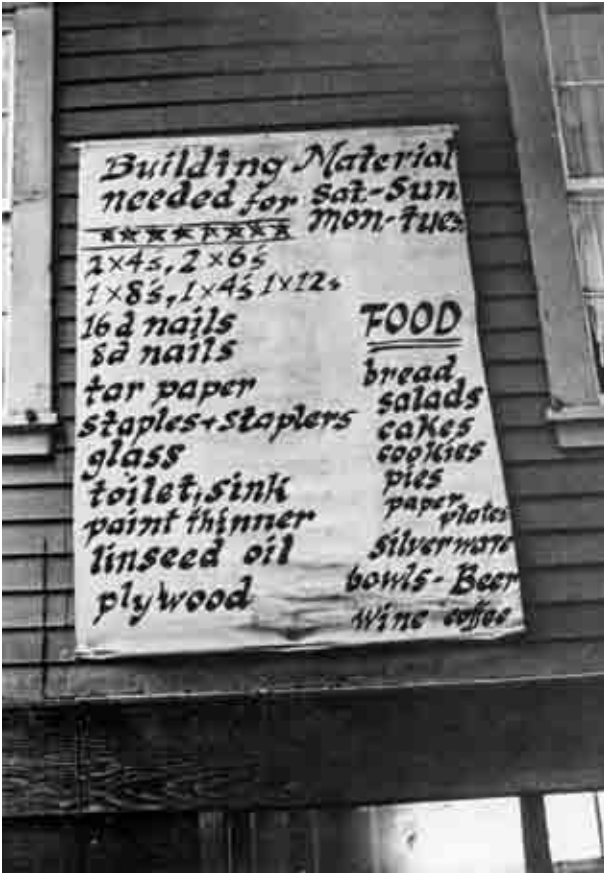 Building Material
needed for Sat-Sun
Mon-Tues
2x4s, 2x6's
1x8's, 1x4's 1x12s
16d nails
8d nails
tar paper
staples+staplers
glass
toilet, sink
paint thinner
linseed oil
plywood
FOOD
bread
salads
cakes
cookies
pies
paper plates
silverware
bowls - Beer
wine coffee